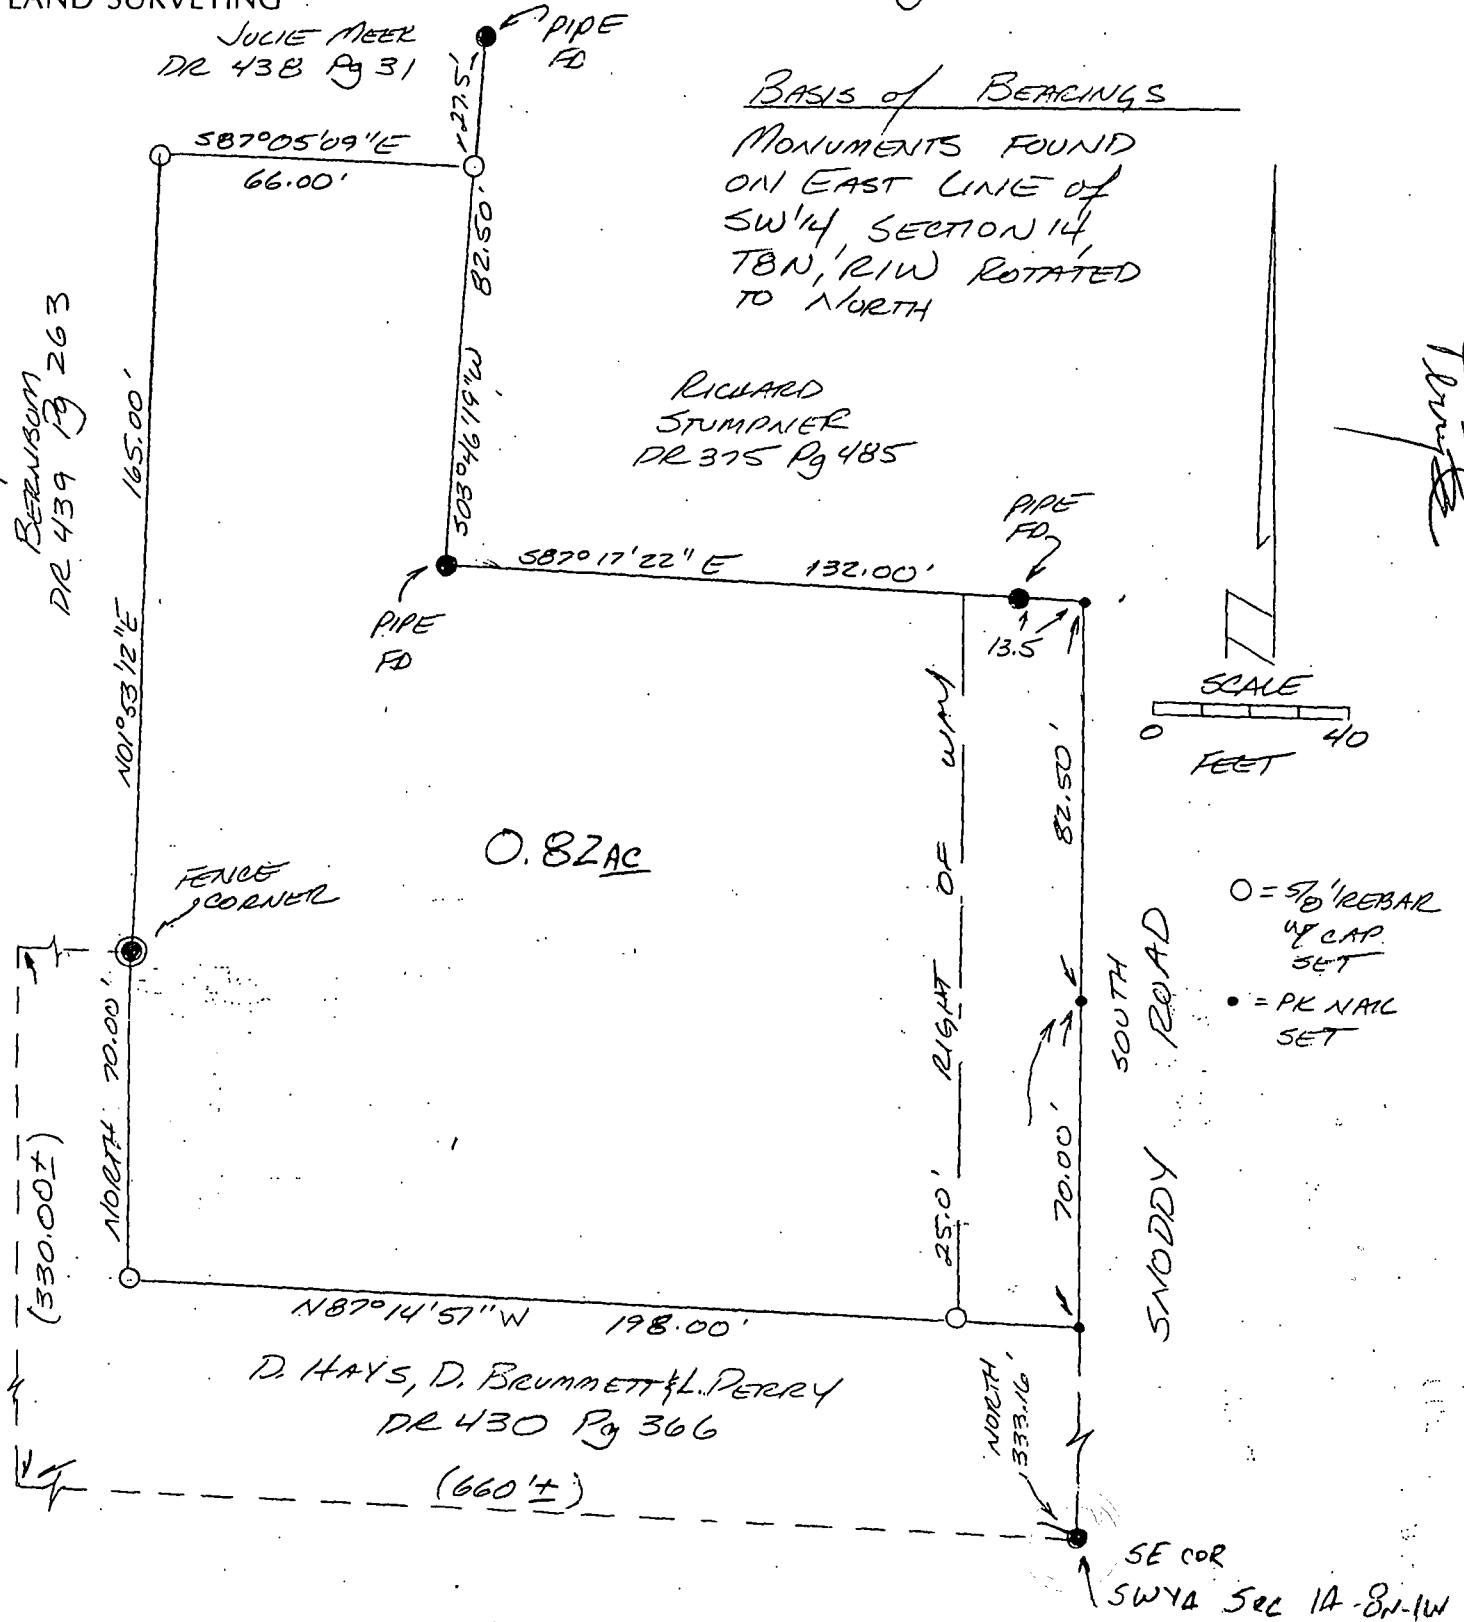 LAND SURVEYING
JULIE MEEK
DR 438 Pg 31
PIPE
FD
27.5'
S87°05'09"E
66.00'
BASIS of BEARINGS
MONUMENTS FOUND
ON EAST LINE of
SW 1/4 SECTION 14,
T8N, R1W ROTATED
TO NORTH
82.50'
S03°46'19"W
BERNBOM
DR 439 Pg 263
165.00'
N01°53'12"E
RICHARD
STUMPNER
DR 375 Pg 485
PIPE
FD
S87°17'22"E 132.00'
PIPE
FD
13.5
SCALE
0 40
FEET
82.50'
25.0' RIGHT OF WAY
0.82 AC
FENCE
CORNER
○ = 5/8" REBAR
W/ CAP
SET
• = PK NAIL
SET
SOUTH
SNODDY ROAD
NORTH 70.00'
70.00'
(330.00±)
N87°14'57"W 198.00'
D. HAYS, D. BRUMMETT & L. PERRY
DR 430 Pg 366
NORTH
333.16'
(660'±)
SE COR
SW 1/4 SEC 14-8N-1W